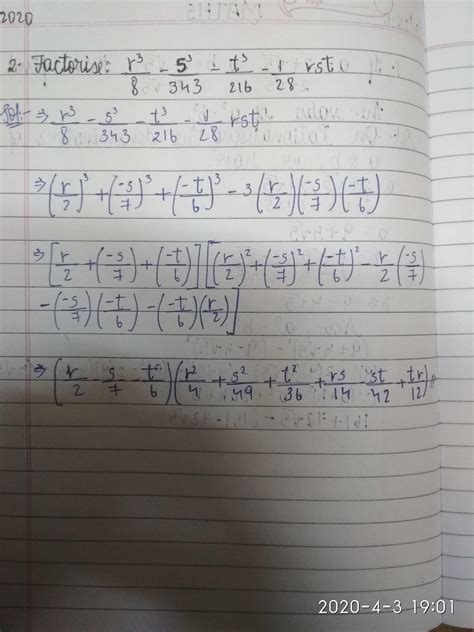 2020
2. Factorise: r³/8 - s³/343 - t³/216 - 1/28 rst
Sol:- ⇒ r³/8 - s³/343 - t³/216 - 1/28 rst
⇒ (r/2)³ + (-s/7)³ + (-t/6)³ - 3(r/2)(-s/7)(-t/6)
⇒ [r/2 + (-s/7) + (-t/6)] [(r/2)² + (-s/7)² + (-t/6)² - r/2(-s/7)
- (-s/7)(-t/6) - (-t/6)(r/2)]
⇒ (r/2 - s/7 - t/6)(r²/4 + s²/49 + t²/36 + rs/14 - st/42 + tr/12)
2020-4-3 19:01